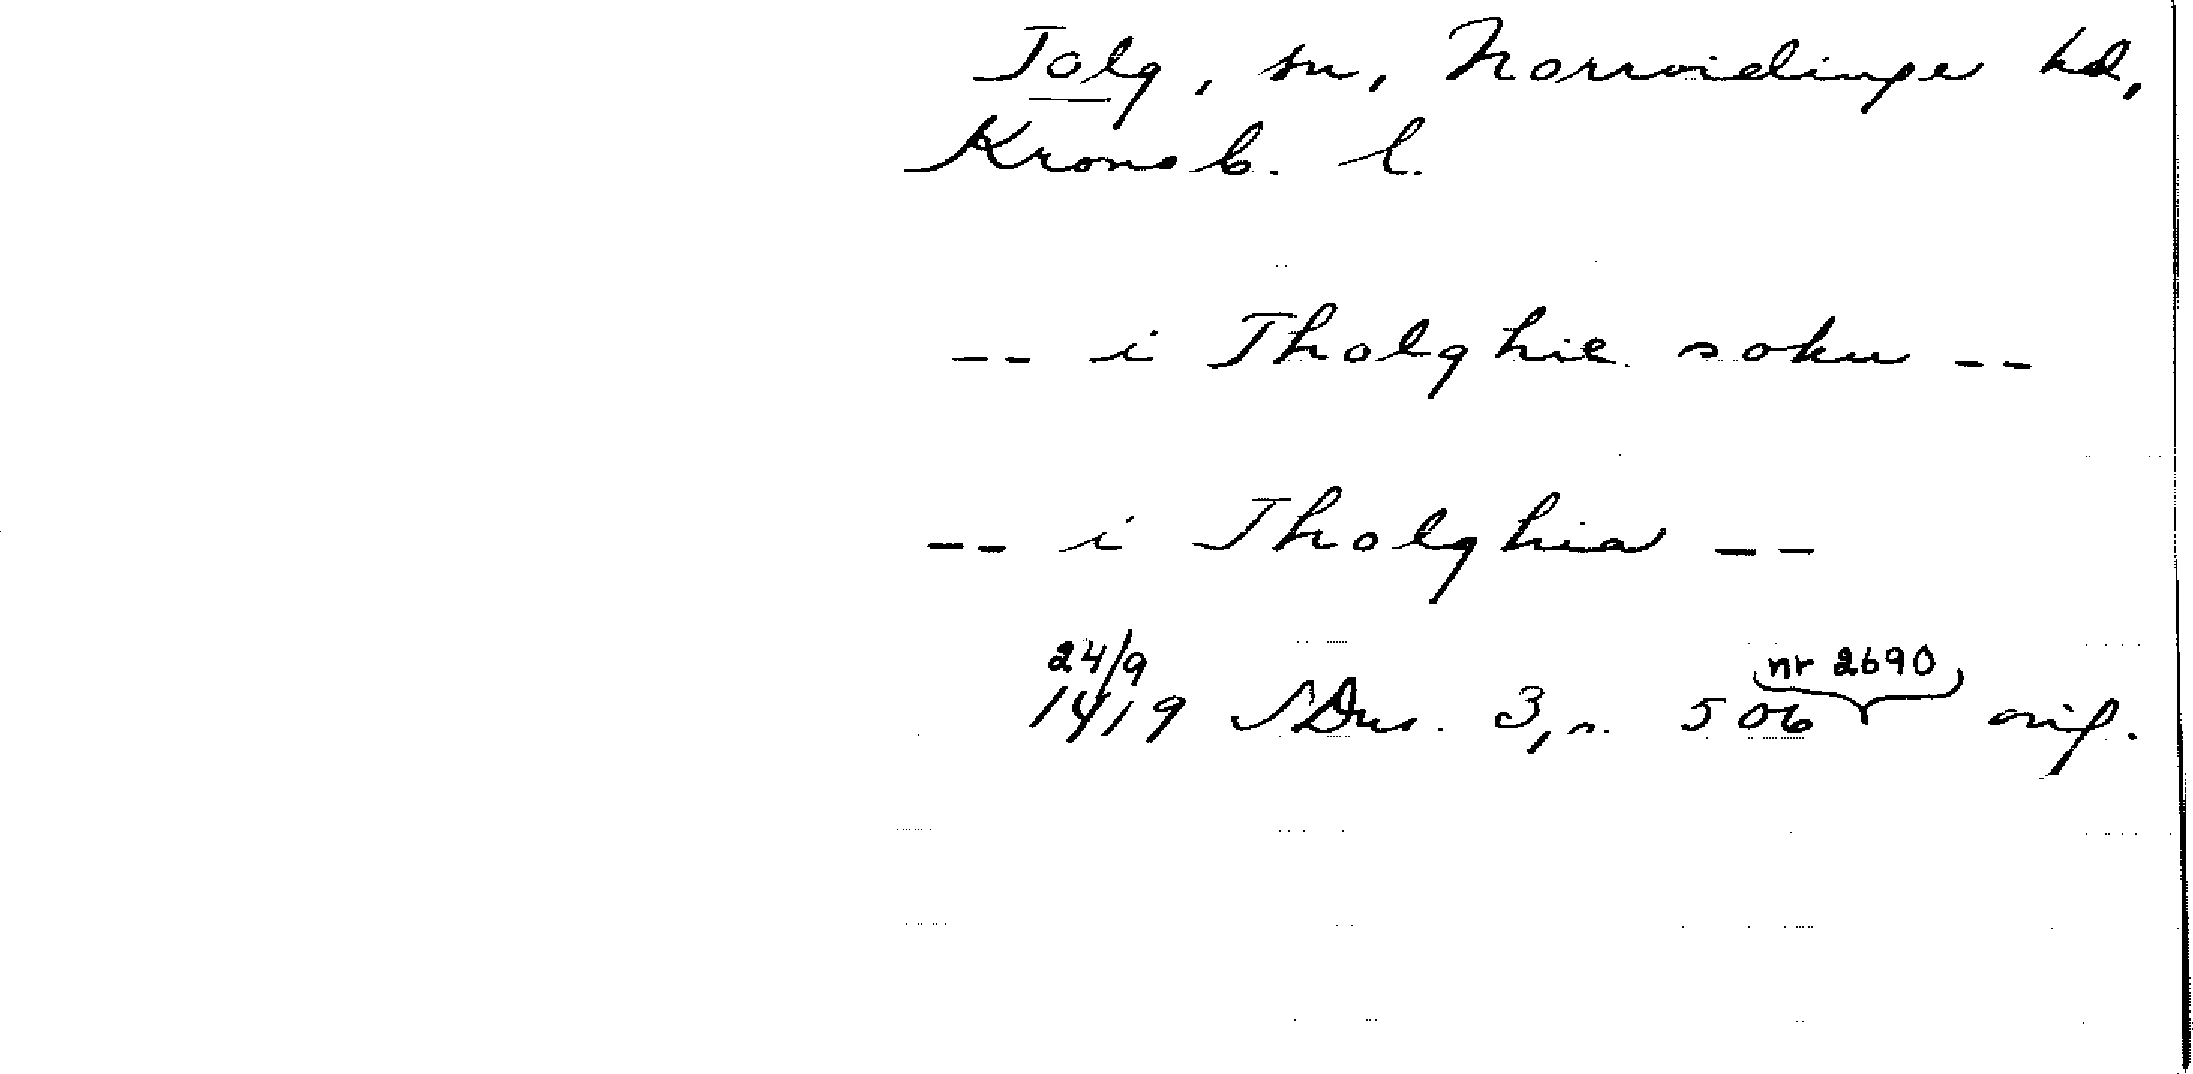 Tolg, sn, Norrvidinge hd,
Kronob. l.
-- i Tholghie sokn --
-- i Tholghia --
24/9 nr 2690
1419 SDns. 3, s. 506 orig.